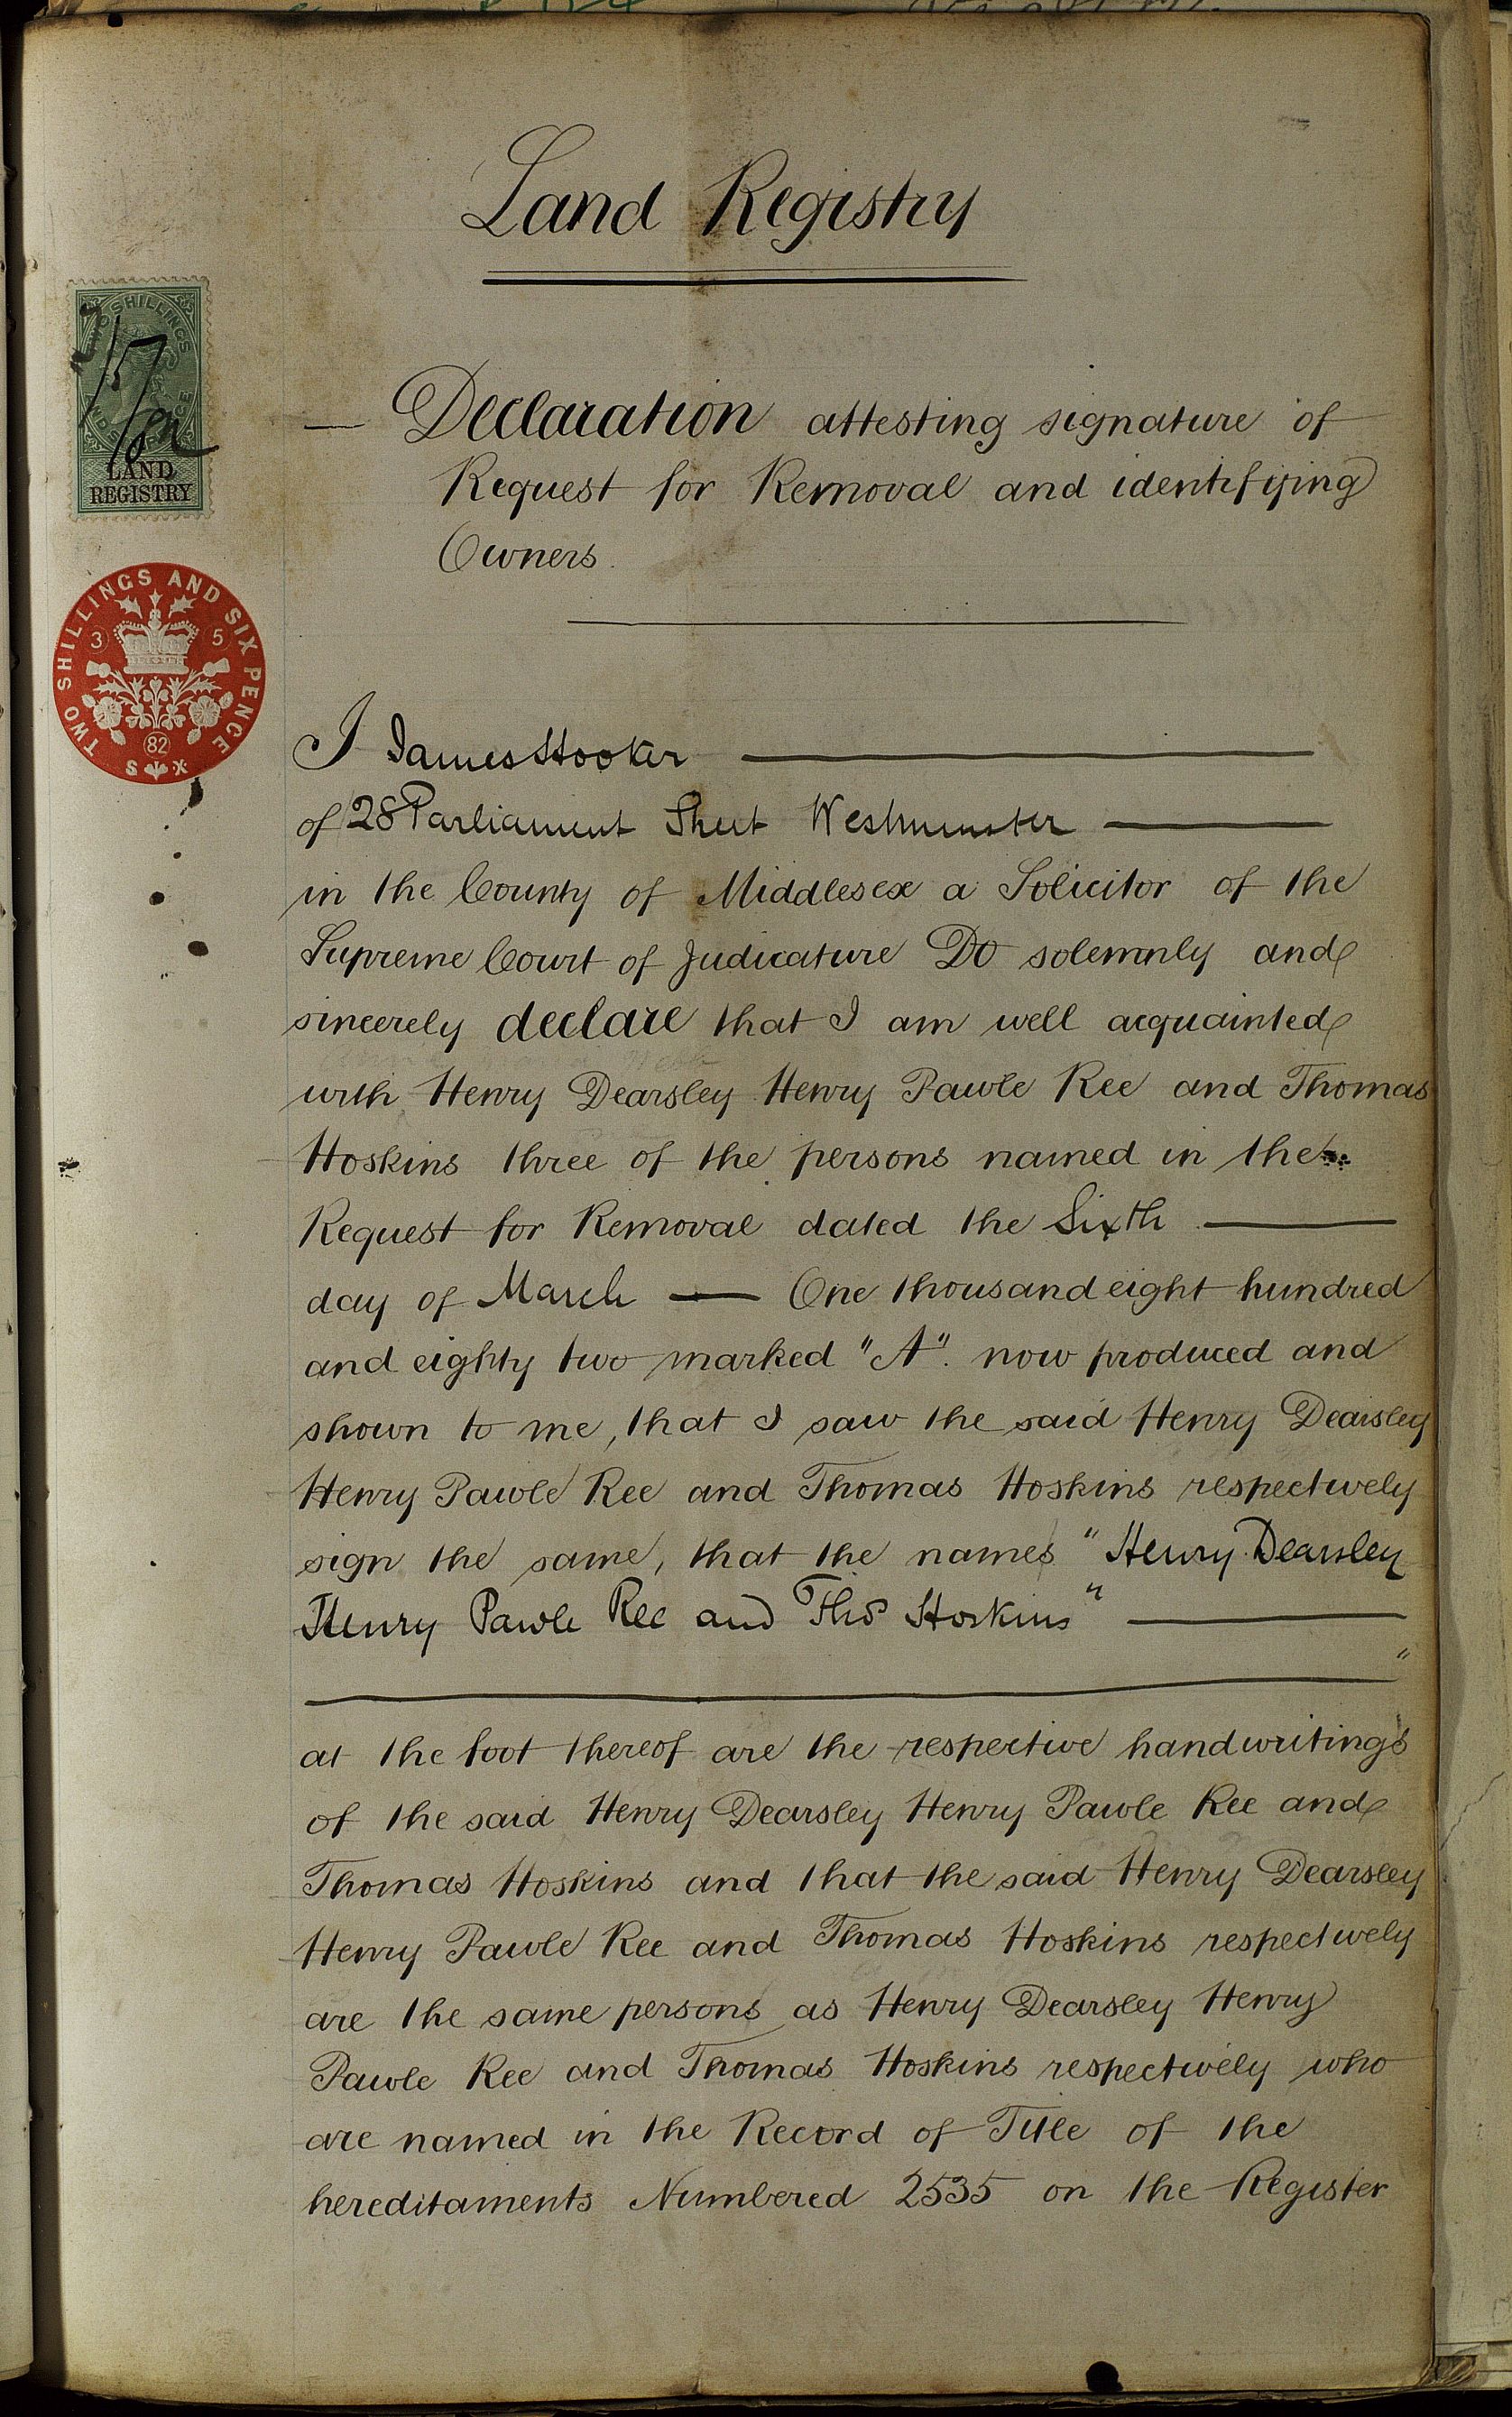 Land Registry
TWO SHILLINGS
LAND
REGISTRY
TWO SHILLINGS AND SIX PENCE
3 5
82
Declaration attesting signature of
Request for Removal and identifying
Owners.
I James Hooker
of 28 Parliament Street Westminster
in the County of Middlesex a Solicitor of the
Supreme Court of Judicature Do solemnly and
sincerely declare that I am well acquainted
with Henry Dearsley Henry Pawle Ree and Thomas
Hoskins three of the persons named in the
Request for Removal dated the Sixth
day of March — One thousand eight hundred
and eighty two marked "A". now produced and
shown to me, that I saw the said Henry Dearsley
Henry Pawle Ree and Thomas Hoskins respectively
sign the same, that the names "Henry Dearsley
Henry Pawle Ree and Thos Hoskins"
"
at the foot thereof are the respective handwritings
of the said Henry Dearsley Henry Pawle Ree and
Thomas Hoskins and that the said Henry Dearsley
Henry Pawle Ree and Thomas Hoskins respectively
are the same persons as Henry Dearsley Henry
Pawle Ree and Thomas Hoskins respectively who
are named in the Record of Title of the
hereditaments Numbered 2535 on the Register